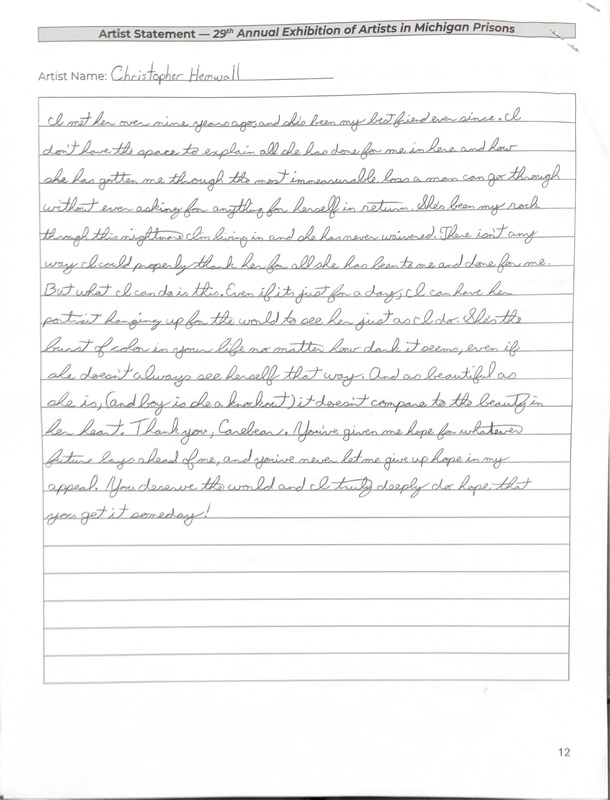 Artist Statement — 29th Annual Exhibition of Artists in Michigan Prisons
Artist Name: Christopher Hemwall
I met her over nine years ago, and she's been my best friend ever since. I
don't have the space to explain all she has done for me in here and how
she has gotten me through the most immeasurable loss a man can go through
without ever asking for anything for herself in return. She's been my rock
through this nightmare I'm living in and she has never waivered. There isn't any
way I could properly thank her for all she has been to me and done for me.
But what I can do is this. Even if it's just for a day, I can have her
portrait hanging up for the world to see her just as I do. She's the
burst of color in your life no matter how dark it seems, even if
she doesn't always see herself that way. And as beautiful as
she is, (and boy is she a knockout) it doesn't compare to the beauty in
her heart. Thank you, Carebear. You've given me hope for whatever
future lays ahead of me, and you've never let me give up hope in my
appeal. You deserve the world and I truly deeply do hope that
you get it someday!
12